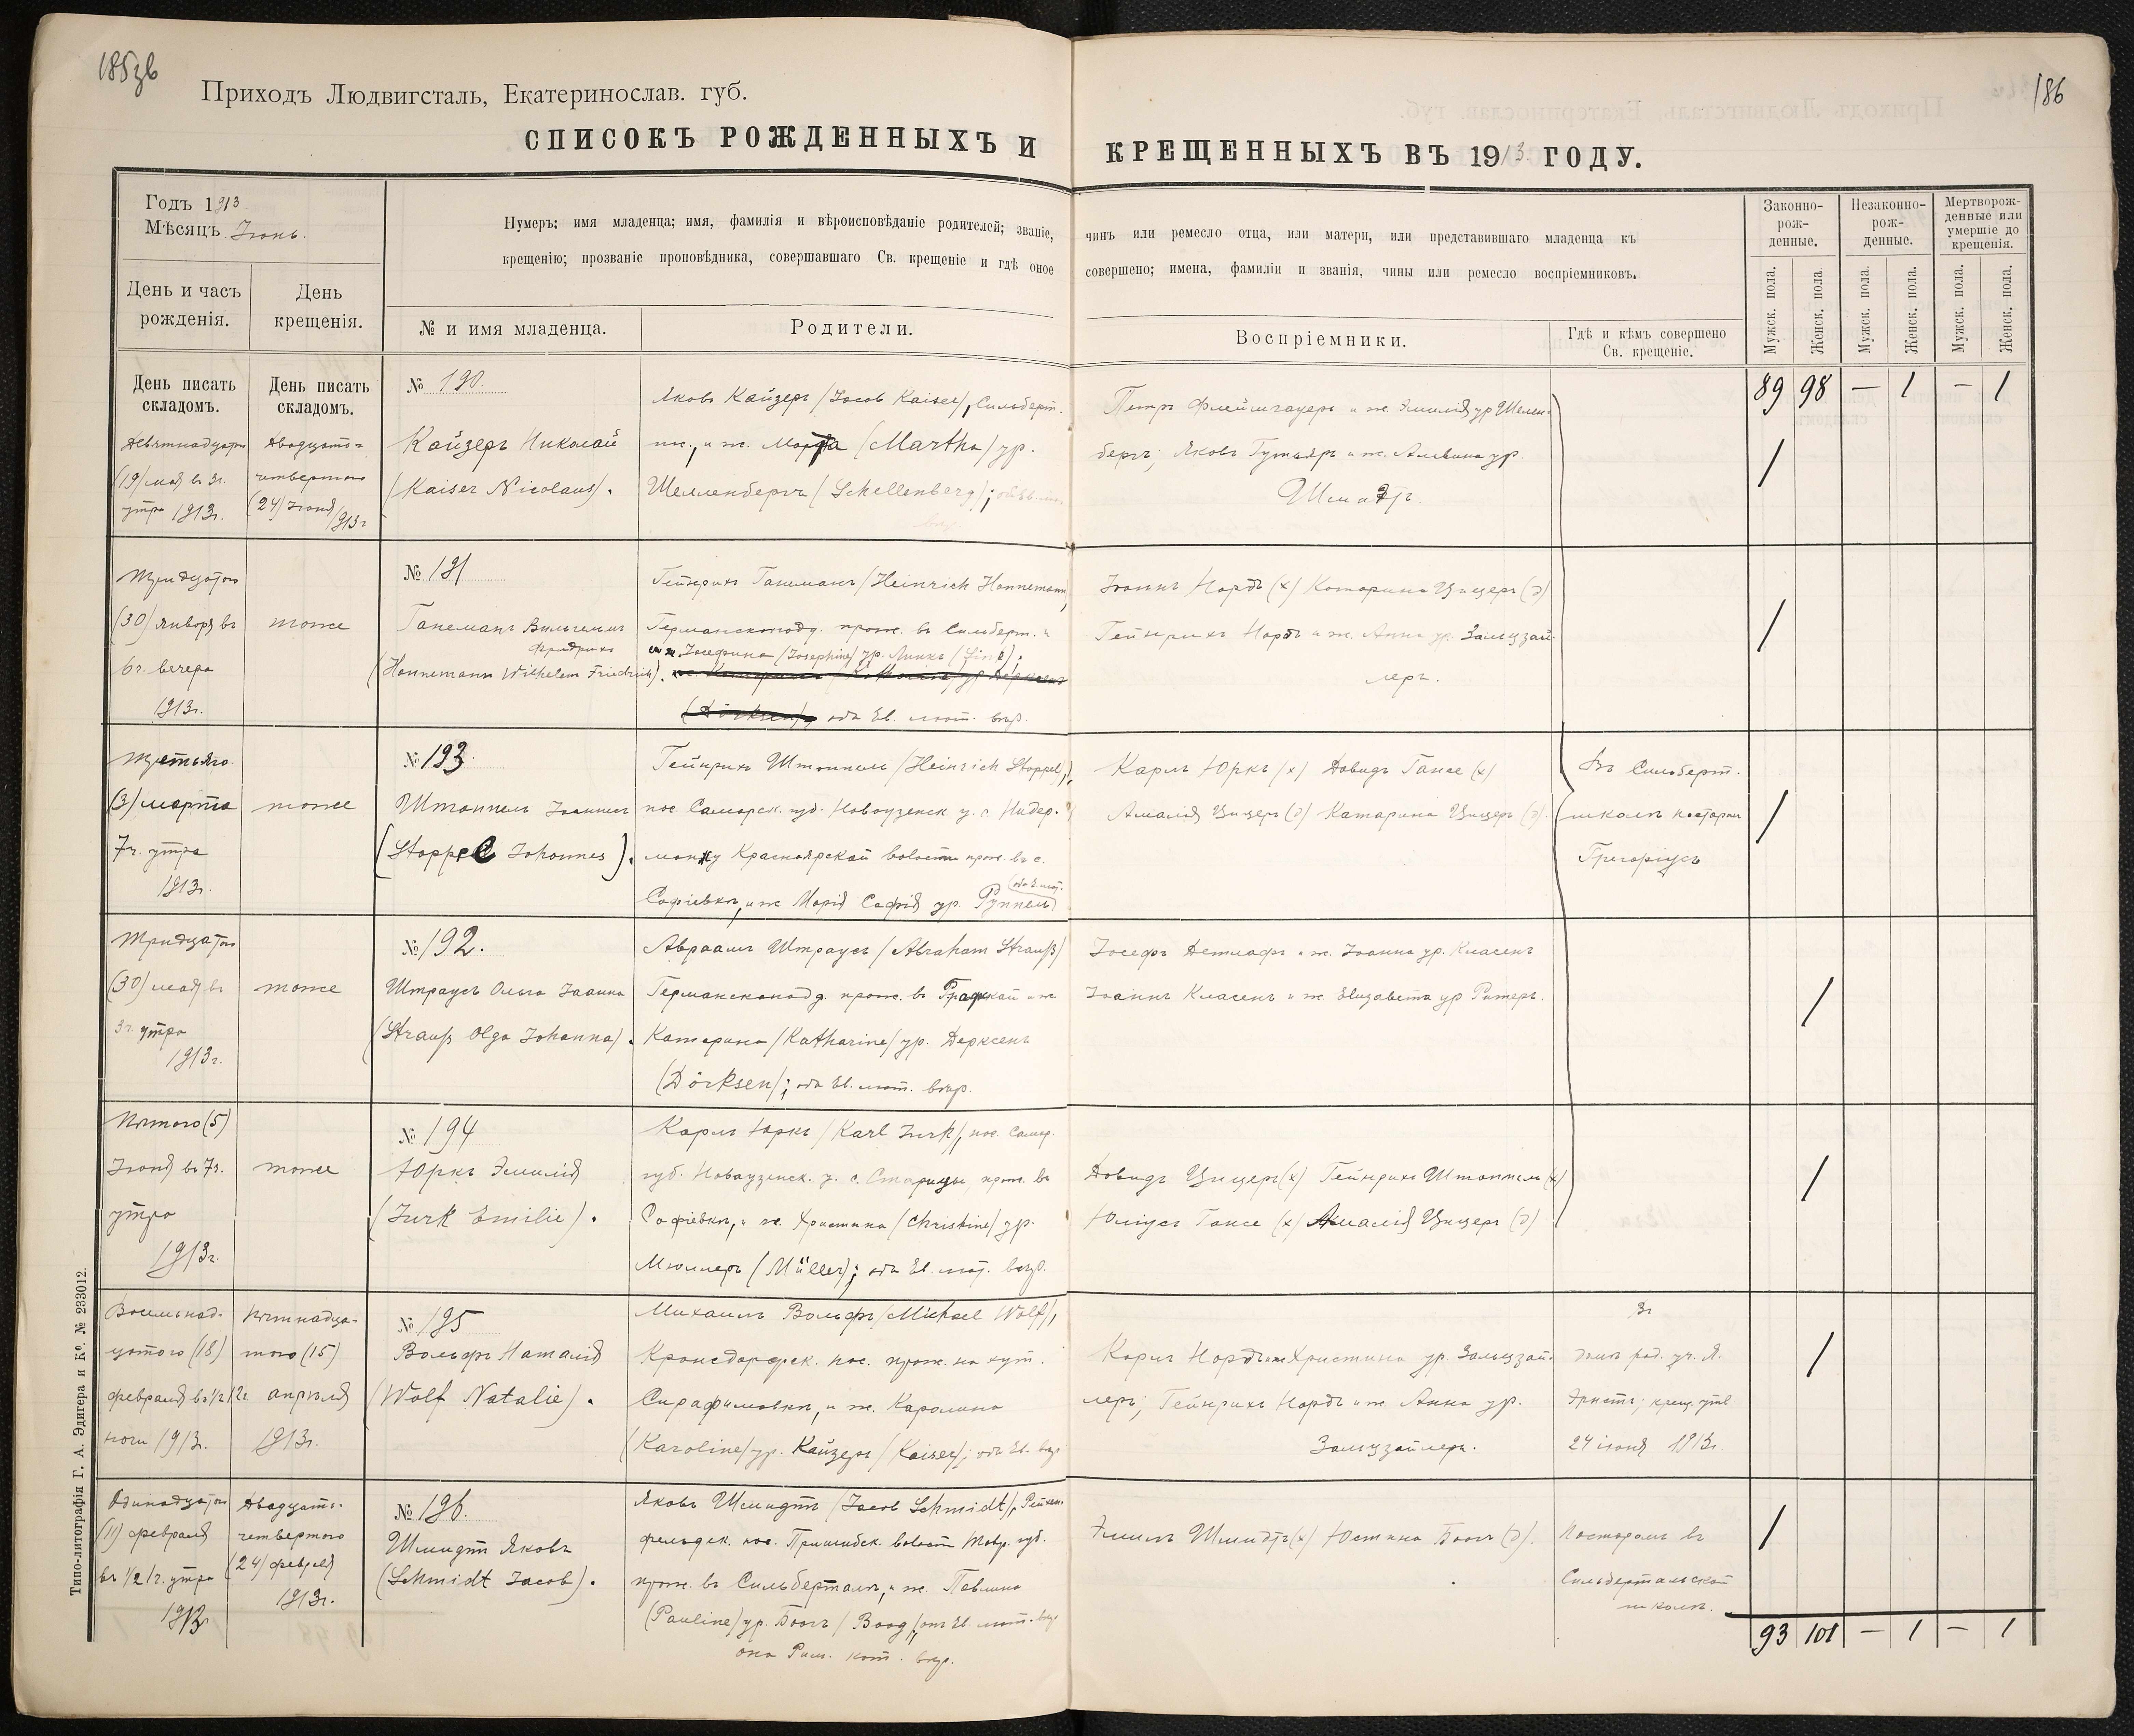 185зв
186
Приходъ Людвигсталь, Екатеринослав. губ.
СПИСОКЪ РОЖДЕННЫХЪ И КРЕЩЕННЫХЪ ВЪ 1913 ГОДУ.
Годъ 1913
Мѣсяцъ Іюнь.
День и часъ рожденія.
День крещенія.
Нумеръ; имя младенца; имя, фамилія и вѣроисповѣданіе родителей; званіе, чинъ или ремесло отца, или матери, или представившаго младенца къ
крещенію; прозваніе проповѣдника, совершавшаго Св. крещеніе и гдѣ оное совершено; имена, фамиліи и званія, чины или ремесло воспріемниковъ.
№ и имя младенца.
Родители.
Воспріемники.
Гдѣ и кѣмъ совершено Св. крещеніе.
Законно-рож-денные.
Незаконно-рож-денные.
Мертворож-денные или умершіе до крещенія.
Мужск. пола.
Женск. пола.
Мужск. пола.
Женск. пола.
Мужск. пола.
Женск. пола.
День писать складомъ.
День писать складомъ.
89 98 — 1 — 1
Девятнадцатаго
(19) мая въ 3ч.
утра 1913г.
Двадцать-
четвертаго
(24) Іюня 1913г
№ 190.
Кайзеръ Николай
(Kaiser Nicolaus).
Яковъ Кайзеръ (Jacob Kaiser), Сильберт.
пос., и ж. Марта (Martha) ур.
Шелленбергъ (Schellenberg);
Петръ Флеймгауеръ и ж. Эмилія ур Шелен-
бергъ; Яковъ Гутьяръ и ж. Альвина ур.
Шмидтъ.
/
Тридцатаго
(30) января въ
6ч. вечера
1913г.
тоже
№ 191
Ганеманъ Вильгельмъ
Фридрихъ
(Hannemann Wilhelm Friedrich).
Гейнрихъ Ганеманъ (Heinrich Hannemann),
Германскоподд. прож. въ Сильберт. и
ж. Іосефина (Josephine) ур. Линкъ
(Dörksen) оба Ев. лют. вѣр.
Іоаннъ Нордъ (х) Катарина Цицеръ (д)
Гейнрихъ Нордъ и ж. Анна ур. Зальцзай-
леръ.
/
Третьяго
(3) марта
7ч. утра
1913г.
тоже
№ 193
Штоппель Іоаннесъ
(Stoppel Johannes).
Гейнрихъ Штоппель (Heinrich Stoppel),
пос. Самарск. губ. Новоузенск у. с Нидер-
монжу Красноярской волости прож. въ с.
Софіевкѣ, и ж Марія Софія ур. Руппель
(оба Е. лют.
Карлъ Юркъ (х) Давидъ Гансе (х)
Амалія Цицеръ (д) Катарина Цицеръ (д).
Въ Сильберт.
школѣ Пасторъ
Грегоріусъ
/
Тридцатаго
(30) мая въ
3ч. утра
1913г.
тоже
№ 192.
Штраусъ Ольга Іоанна
(Strauß Olga Johanna).
Авраамъ Штраусъ (Abraham Strauß)
Германскоподд. прож. въ Графской и ж
Катарина (Katharine) ур. Дерксенъ
(Dörksen); оба Ев. лют. вѣр.
Іосефъ Детлафъ и ж. Іоанна ур. Класенъ
Іоаннъ Класенъ и ж Елизавета ур Ритеръ.
/
Пятаго (5)
Іюня въ 7ч.
утра
1913г.
тоже
№ 194
Юркъ Эмилія
(Jurk Emilie).
Карлъ Юркъ (Karl Jurk), пос. Самар.
губ. Новоузенск. у. с. Старицы, прож. въ
Софіевкѣ, и ж. Христина (Christine) ур.
Мюллеръ (Müller); оба Ев. лют. вѣр.
Давидъ Цицеръ (х) Гейнрихъ Штоппель (х)
Юліусъ Гансе (х) Амалія Цицеръ (д)
/
Восемнад-
цатаго (18)
февраля въ 1/2 12г.
ночи 1913г.
Пятнадца-
таго (15)
апрѣля
1913г.
№ 195
Вольфъ Наталія
(Wolf Natalie).
Михаилъ Вольфъ (Michael Wolf),
Кронсдорфск. пос. прож. на хут.
Сирафимовкѣ, и ж. Каролина
(Karoline) ур. Кайзеръ (Kaiser); оба Ев. вѣр
Карлъ Нордъ и ж Христина ур. Зальцзай-
леръ; Гейнрихъ Нордъ и ж Анна ур.
Зальцзайлеръ.
домъ род. уч. Я.
Эрнстъ; крещ. утв
24 іюня 1913г.
/
Одинадцатаго
(11) февраля
въ 1/2 1ч. утра
1913г.
Двадцать-
четвертаго
(24) февраля
1913г.
№ 196.
Шмидтъ Яковъ
(Schmidt Jacob).
Яковъ Шмидтъ (Jacob Schmidt), Рейхен-
фельдск. пос. Пришибск. волости Тавр. губ.
прож. въ Сильберталѣ, и ж. Павлина
(Pauline) ур. Боогъ (Boog), онъ Ев. лют. вѣр
она Рим. кат. вѣр.
Эмиль Шмидтъ (х) Юстина Боогъ (д).
Пасторомъ въ
Сильбертальской
школѣ.
/
93 101 — 1 — 1
Типо-литографія Г. А. Эдигера и К⁰. № 233012.